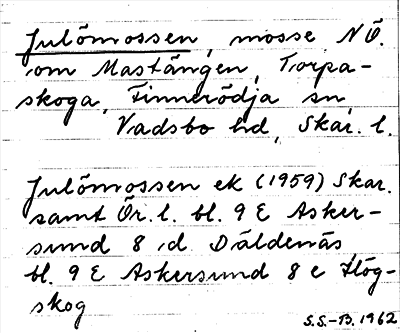 Julömossen, mosse NÖ.
om Mastängen, Torpa-
skoga, Finnerödja sn,
Vadsbo hd, Skar. l.
Julömossen ek (1959) Skar.
samt Ör. l. bl. 9 E Asker-
sund 8 d Däldenäs,
bl. 9 E Askersund 8 e Hög-
skog
S.S.-B. 1962